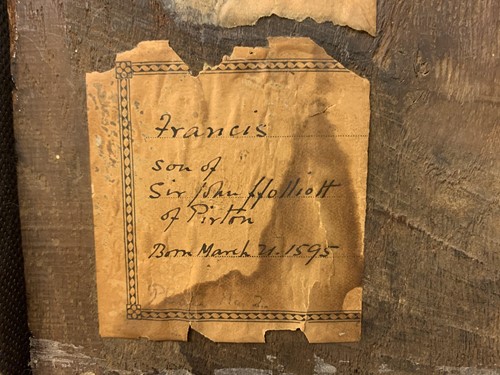 Francis
son of
Sir John ffolliott
of Pirton
Born March 21. 1595